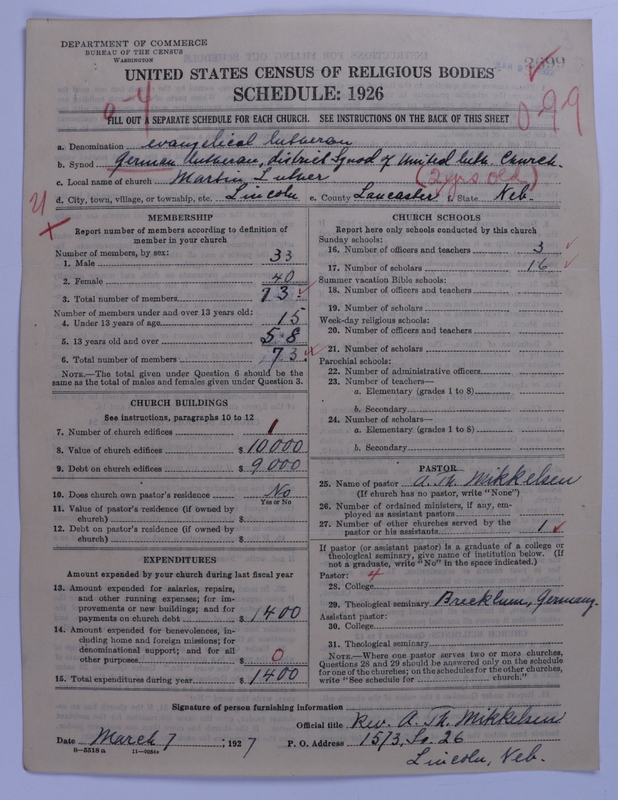 DEPARTMENT OF COMMERCE
BUREAU OF THE CENSUS
WASHINGTON
UNITED STATES CENSUS OF RELIGIOUS BODIES
SCHEDULE: 1926
0-4
099
FILL OUT A SEPARATE SCHEDULE FOR EACH CHURCH. SEE INSTRUCTIONS ON THE BACK OF THIS SHEET
a. Denomination evangelical Lutheran
b. Synod German Lutheran, district Synod of United Luth. Church.
c. Local name of church Martin Luther (2 yrs old)
d. City, town, village, or township, etc. Lincoln e. County Lancaster f. State Neb.
MEMBERSHIP
Report number of members according to definition of
member in your church
Number of members, by sex:
1. Male 33
2. Female 40
3. Total number of members 73
Number of members under and over 13 years old:
4. Under 13 years of age 15
5. 13 years old and over 58
6. Total number of members 73
NOTE.—The total given under Question 6 should be the
same as the total of males and females given under Question 3.
CHURCH BUILDINGS
See instructions, paragraphs 10 to 12
7. Number of church edifices 1
8. Value of church edifices $ 10000
9. Debt on church edifices $ 9000
10. Does church own pastor's residence No
Yes or No
11. Value of pastor's residence (if owned by
church) $
12. Debt on pastor's residence (if owned by
church) $
EXPENDITURES
Amount expended by your church during last fiscal year
13. Amount expended for salaries, repairs,
and other running expenses; for im-
provements or new buildings; and for
payments on church debt $ 1400
14. Amount expended for benevolences, in-
cluding home and foreign missions; for
denominational support; and for all
other purposes $ 0
15. Total expenditures during year $ 1400
CHURCH SCHOOLS
Report here only schools conducted by this church
Sunday schools:
16. Number of officers and teachers 3
17. Number of scholars 16
Summer vacation Bible schools:
18. Number of officers and teachers
19. Number of scholars
Week-day religious schools:
20. Number of officers and teachers
21. Number of scholars
Parochial schools:
22. Number of administrative officers
23. Number of teachers—
a. Elementary (grades 1 to 8)
b. Secondary
24. Number of scholars—
a. Elementary (grades 1 to 8)
b. Secondary
PASTOR
25. Name of pastor A. Th. Mikkelsen
(If church has no pastor, write "None")
26. Number of ordained ministers, if any, em-
ployed as assistant pastors
27. Number of other churches served by the
pastor or his assistants 1
If pastor (or assistant pastor) is a graduate of a college or
theological seminary, give name of institution below. (If
not a graduate, write "No" in the space indicated.)
Pastor: 4
28. College
29. Theological seminary Brecklum, Germany.
Assistant pastor:
30. College
31. Theological seminary
NOTE.—Where one pastor serves two or more churches,
Questions 28 and 29 should be answered only on the schedule
for one of the churches; on the schedules for the other churches,
write "See schedule for church."
Signature of person furnishing information
Official title Rev. A. Th. Mikkelsen
Date March 7, 1927 P. O. Address 1573, So. 26
8-5518a
Lincoln, Neb.